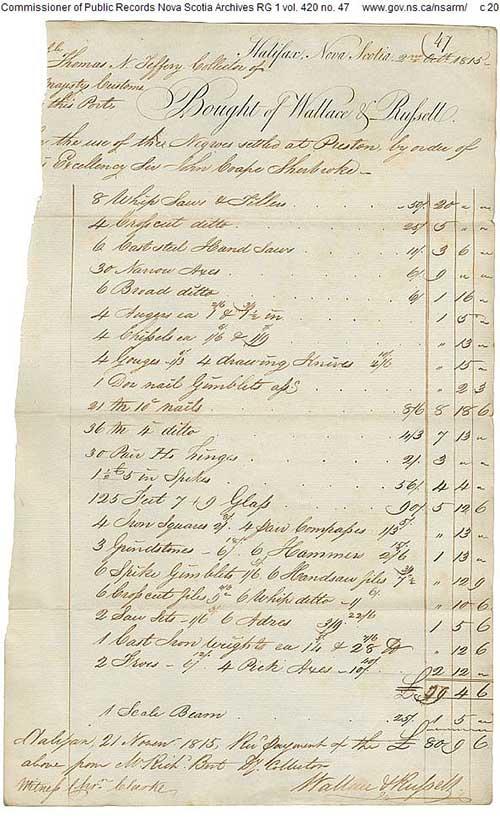 Commissioner of Public Records Nova Scotia Archives RG 1 vol. 420 no. 47 www.gov.ns.ca/nsarm/ c 20
47
Halifax, Nova Scotia 2nd Octr 1815
Thomas N. Jeffery Collector of
Majestys Customs
this Port
Bought of Wallace & Russell.
the use of the Negroes settled at Preston by order of
Excellency Sir John Coape Sherbrooke
8 Whip Saws & Tillers 50/ 20 " "
4 Crosscut ditto 25/ 5 " "
6 Cast steel Hand Saws 11/ 3 6 "
30 Narrow Axes 6/ 9 " "
6 Broad ditto 6/ 1 16 "
4 Augers ea 1 & 1½ in 1 5 "
4 Chisels ea " 13 "
4 Gouges 4 drawing Knives 2/6 " 15 "
1 Doz nail Gimblets assd " 2 3
21 M 10d nails 8/6 8 18 6
36 M 4d ditto 4/3 7 13 "
30 Pair Hs hinges 2/ 3 " "
1½ C 5 in Spikes 56/ 4 4 "
125 Feet 7 x 9 Glass 90/ 5 12 6
4 Iron Squares 2/ 4 Saw Compasses 1/3 " 13 "
3 Grindstones 6/ 6 Hammers 2/6 1 13 "
6 Spike Gimblets 1/6 6 Handsaw files " 12 9
6 Crosscut files 6 Whip ditto 1/ " 10 6
2 Saw Sets 1/6 6 Adzes 3/9 1 5 6
1 Cast Iron weights ea 14 & 28 lb " 12 6
2 4 Pick Axes 10/ 2 12 "
£ 79 4 6
1 Scale Beam 25/ 1 5 "
Halifax, 21 Novem 1815, Recd payment of the £ 80 9 6
above from Mr Richd Best Dy. Collector
Witness Thos. Clarke Wallace & Russell